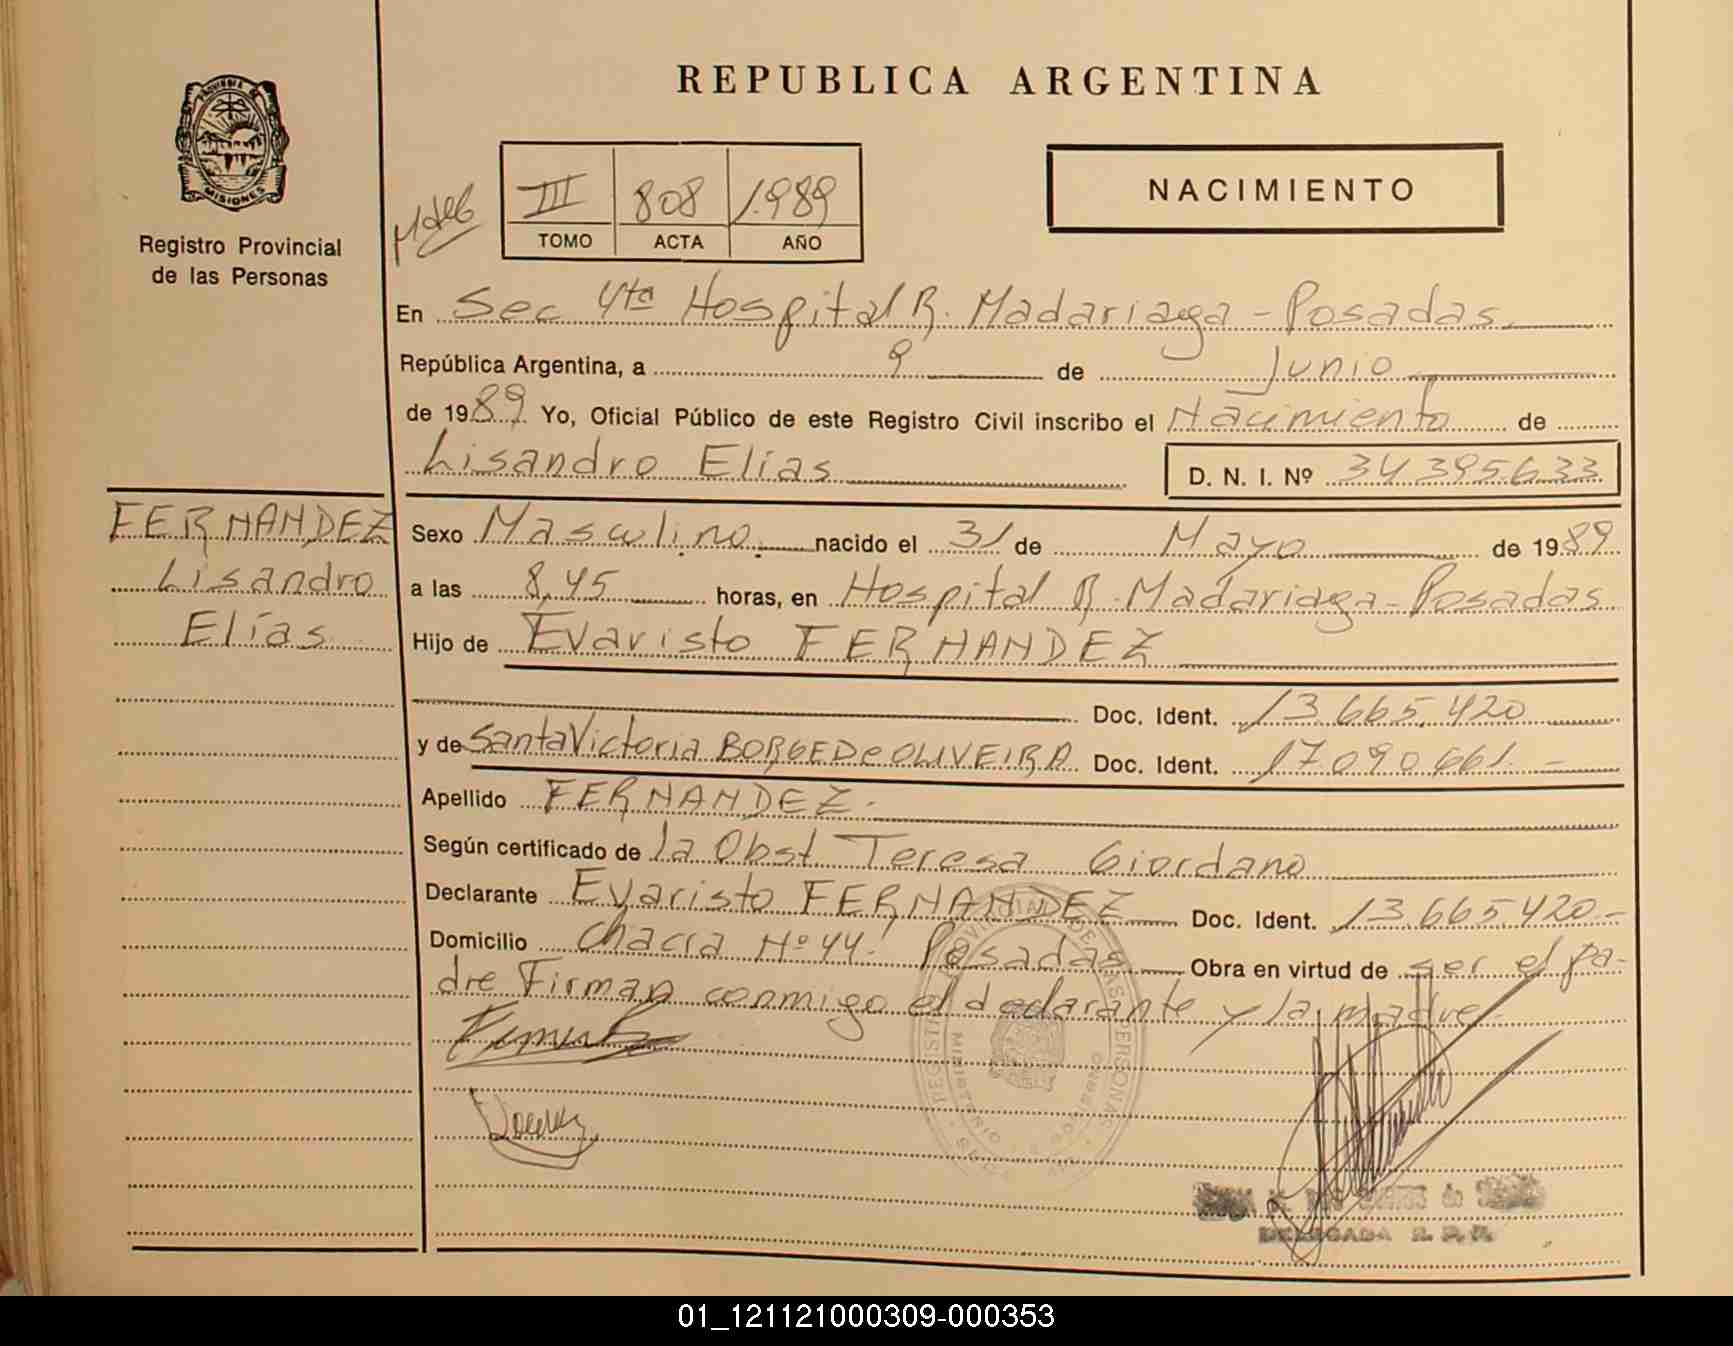 REPUBLICA ARGENTINA
PROVINCIA DE MISIONES
Registro Provincial
de las Personas
III 808 1.989
TOMO ACTA AÑO
NACIMIENTO
En Sec 4ta Hospital R. Madariaga - Posadas
República Argentina, a 9 de Junio
de 1989 Yo, Oficial Público de este Registro Civil inscribo el Nacimiento de
Lisandro Elías D. N. I. Nº 34395633
FERNANDEZ
Lisandro
Elías
Sexo Masculino nacido el 31 de Mayo de 1989
a las 8,45 horas, en Hospital R. Madariaga - Posadas
Hijo de Evaristo FERNANDEZ
Doc. Ident. 13.665.420
y de Santa Victoria BORGE De OLIVEIRA Doc. Ident. 17.090.661. -
Apellido FERNANDEZ.
Según certificado de la Obst. Teresa Giordano
Declarante Evaristo FERNANDEZ Doc. Ident. 13.665.420 -
Domicilio Chacra Nº 44. Posadas Obra en virtud de ser el pa-
dre Firman conmigo el declarante y la madre.
DELEGADA R. P. P.
01_121121000309-000353